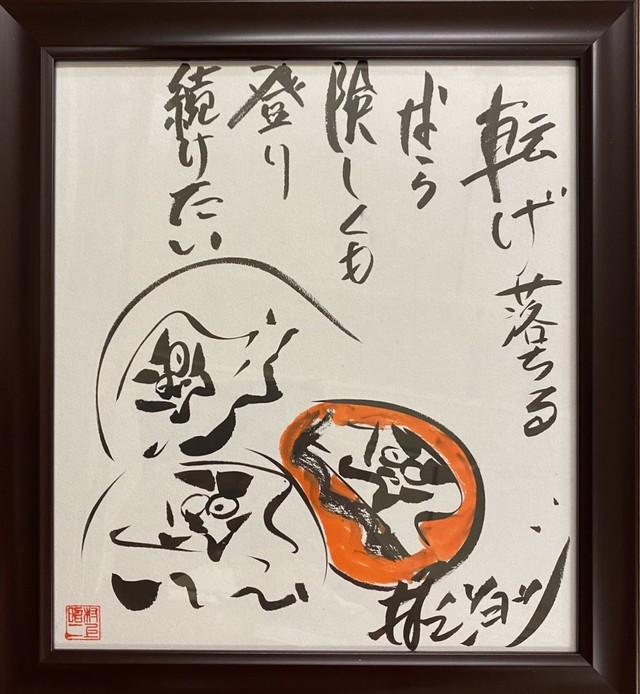 転げ落ちる
なら
険しくも
登り
続けたい